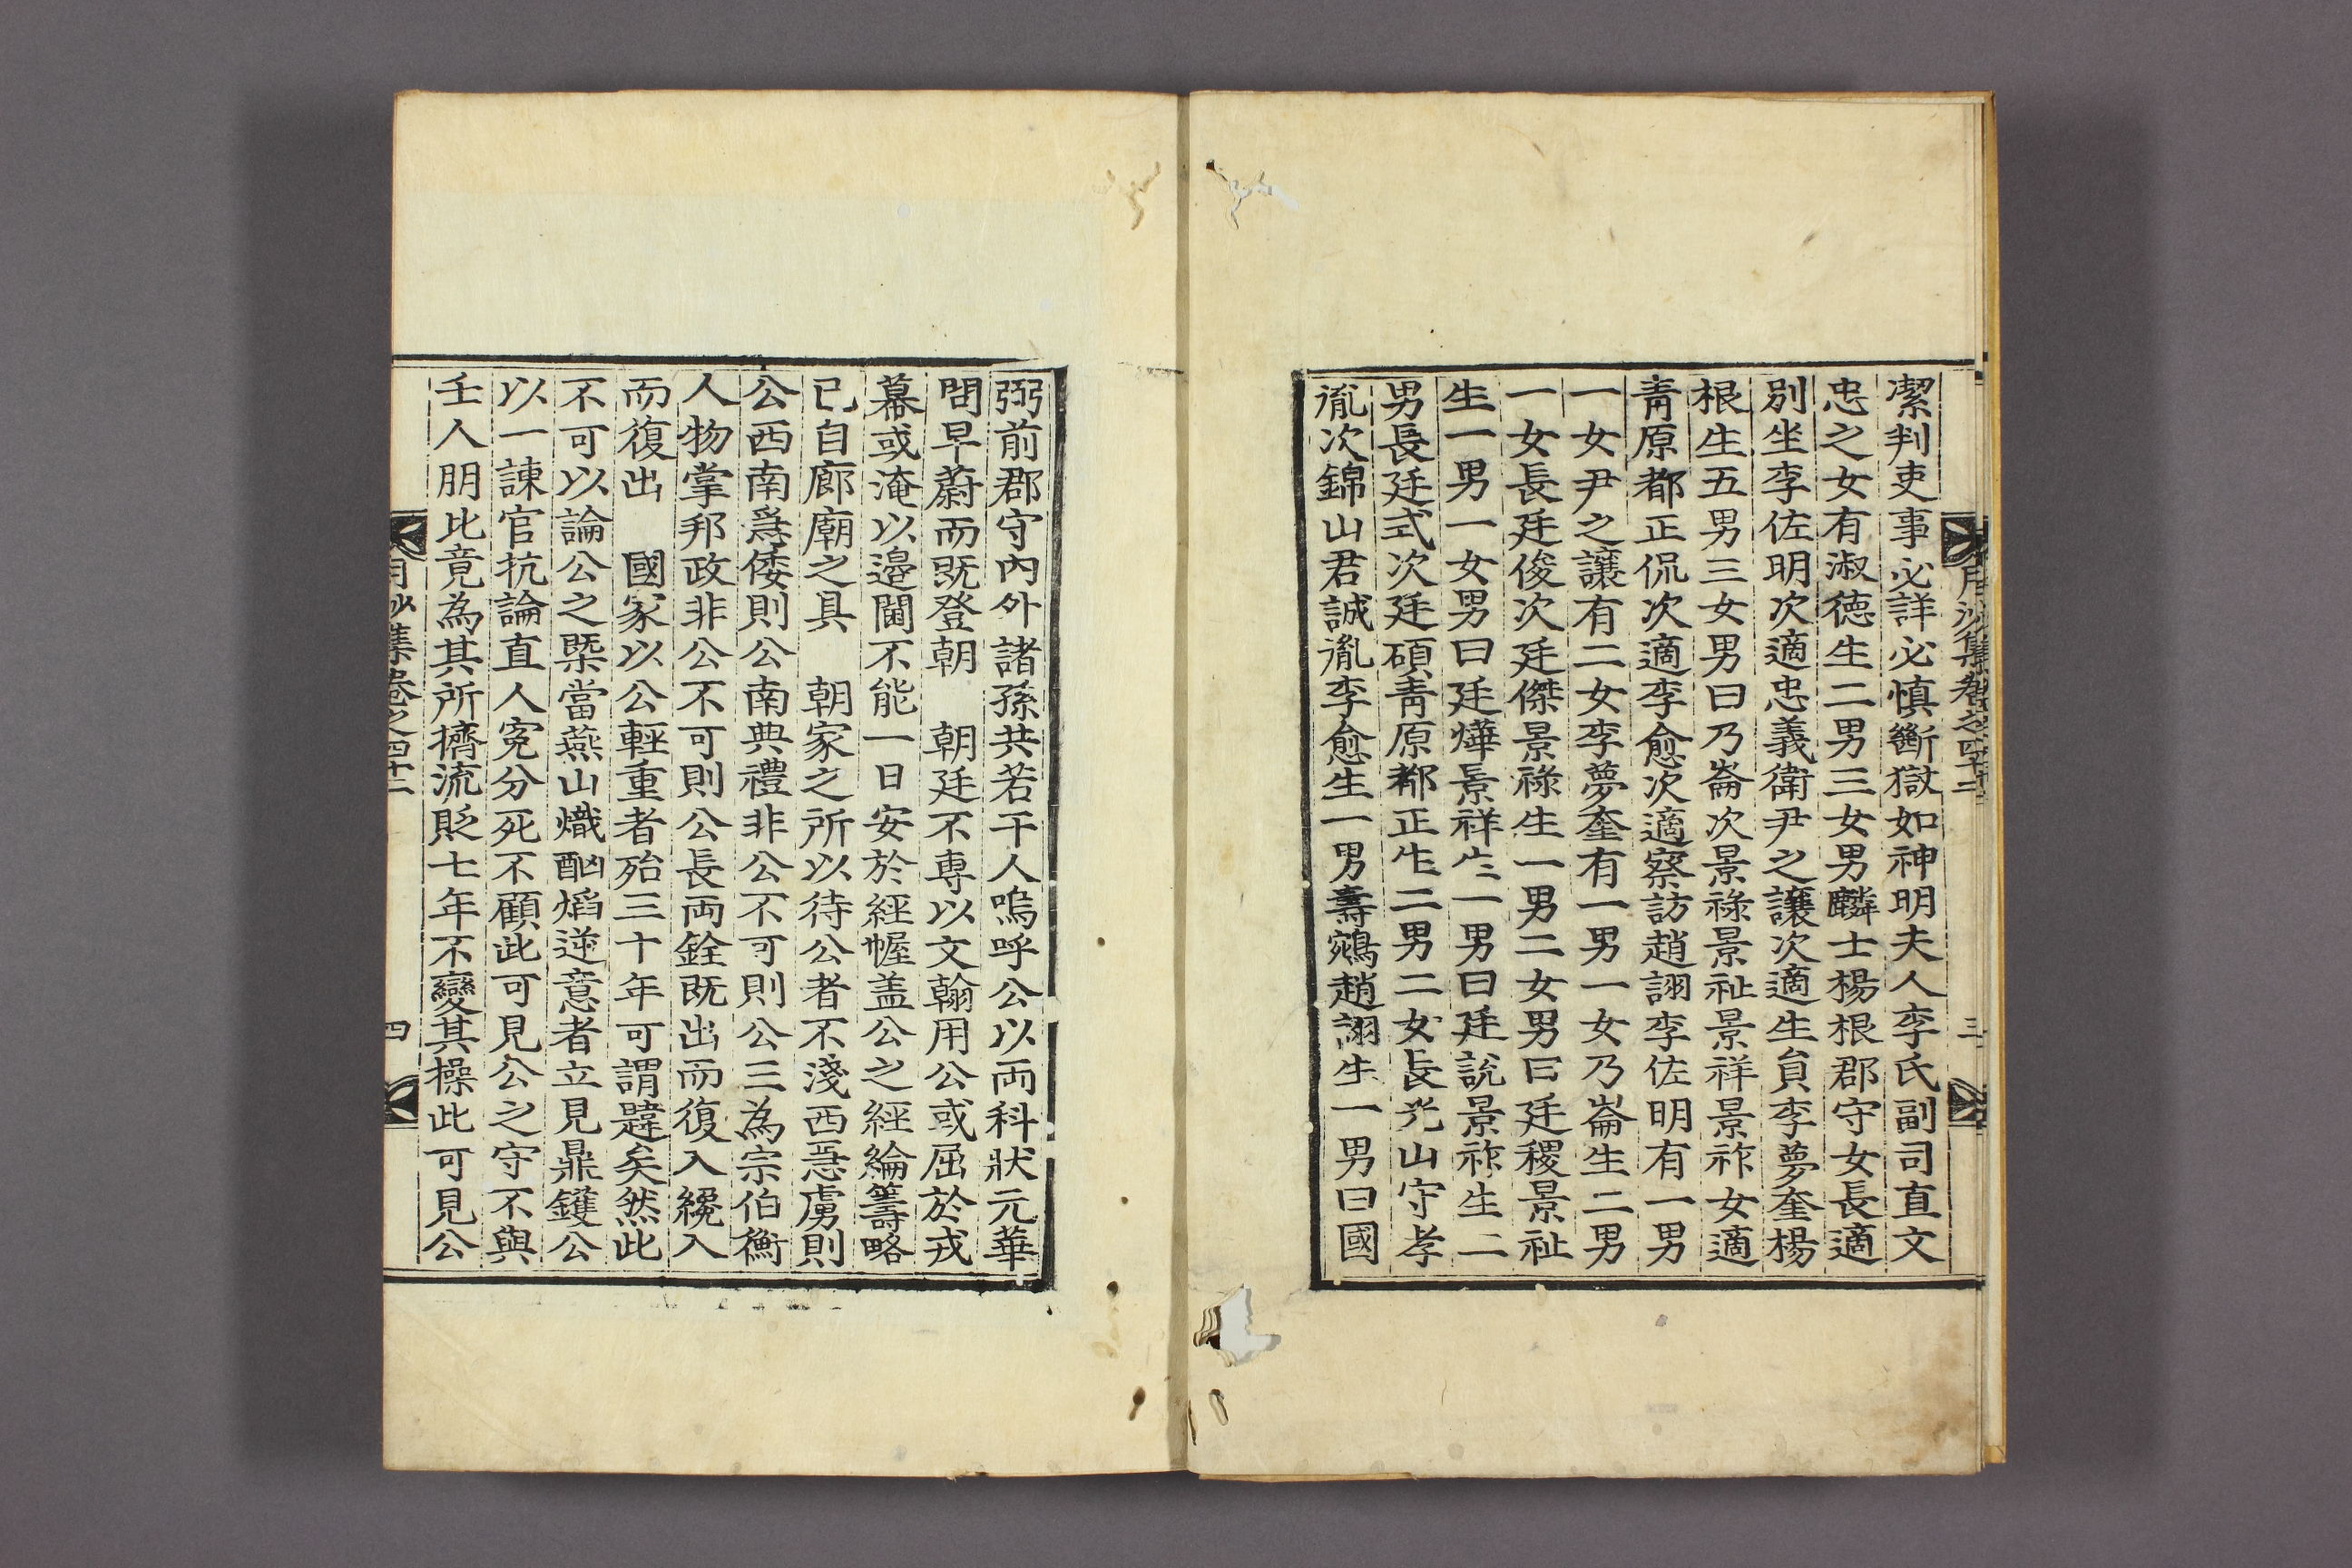 月沙集卷之四十二
三
潔判吏事必詳必慎斷獄如神明夫人李氏副司直文
忠之女有淑德生二男三女男麟士楊根郡守女長適
別坐李佐明次適忠義衛尹之讓次適生員李夢奎楊
根生五男三女男曰乃崙次景祿景祉景祥景祚女適
靑原都正侃次適李愈次適察訪趙詡李佐明有一男
一女尹之讓有二女李夢奎有一男一女乃崙生二男
一女長廷俊次廷傑景祿生一男二女男曰廷稷景祉
生一男一女男曰廷燁景祥生一男曰廷說景祚生二
男長廷式次廷碩靑原都正生二男二女長光山守孝
胤次錦山君誠胤李愈生一男壽鵷趙詡生一男曰國
弼前郡守內外諸孫共若干人嗚呼公以両科狀元華
問早蔚而既登朝　朝廷不専以文翰用公或屈於戎
幕或淹以邉閫不能一日安於經幄盖公之經綸籌略
已自廊廟之具　朝家之所以待公者不淺西惎虜則
公西南爲倭則公南典禮非公不可則公三為宗伯衡
人物掌邦政非公不可則公長両銓既出而復入纔入
而復出　國家以公輕重者殆三十年可謂韙矣然此
不可以論公之槩當燕山熾酗焰逆意者立見鼎鑊公
以一諫官抗論直人寃分死不顧此可見公之守不與
壬人朋比竟為其所擠流貶七年不變其操此可見公
月沙集卷之四十二
四